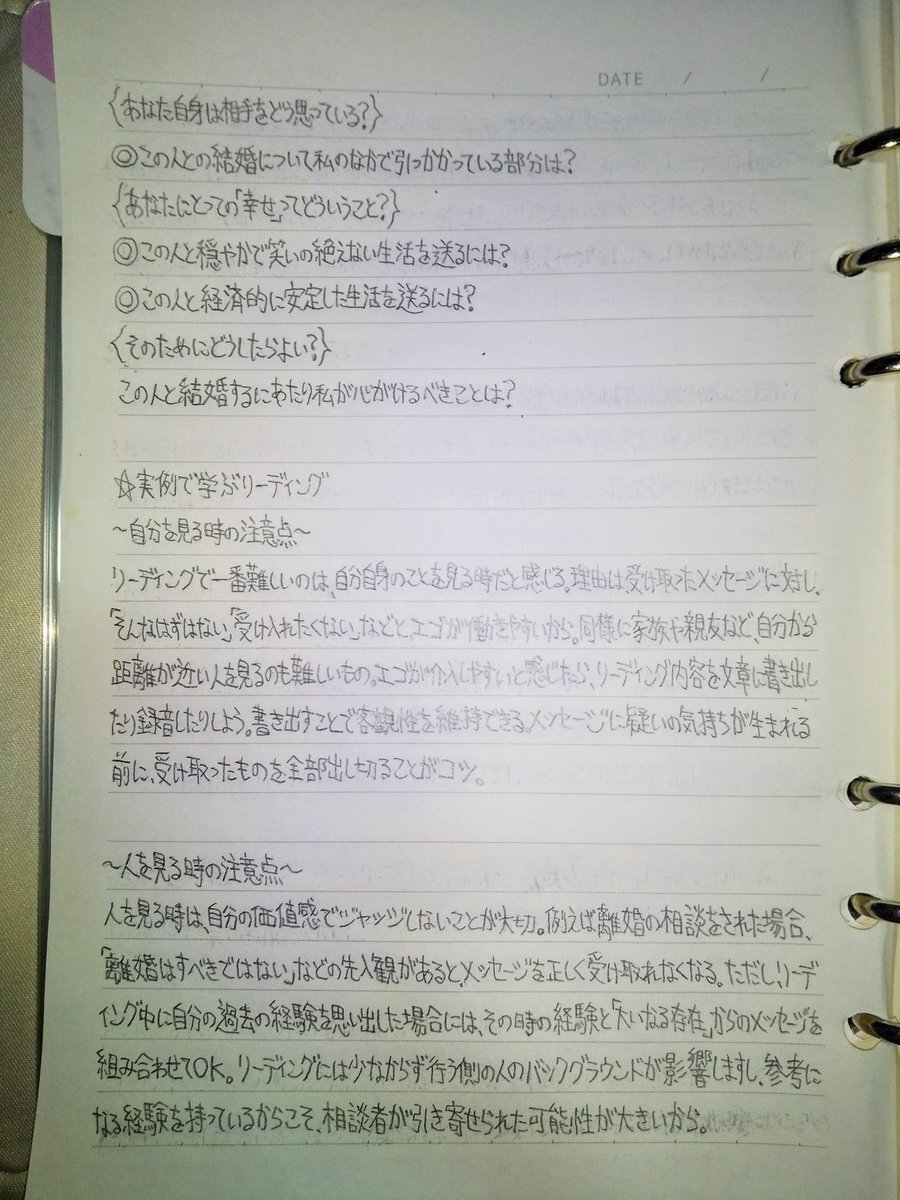 DATE / /
{あなた自身は相手をどう思っている?}
◎この人との結婚について私のなかで引っかかっている部分は?
{あなたにとっての「幸せ」ってどういうこと?}
◎この人と穏やかで笑いの絶えない生活を送るには?
◎この人と経済的に安定した生活を送るには?
{そのためにどうしたらよい?}
この人と結婚するにあたり私が心がけるべきことは?
☆実例で学ぶリーディング
～自分を見る時の注意点～
リーディングで一番難しいのは、自分自身のことを見る時だと感じる。理由は、受け取ったメッセージに対し、
「そんなはずはない」「受け入れたくない」などと、エゴが働きやすいから。同様に家族や親友など、自分から
距離が近い人を見るのも難しいもの。エゴが介入しやすいと感じたら、リーディング内容を文章に書き出し
たり録音したりしよう。書き出すことで客観性を維持できる。メッセージに疑いの気持ちが生まれる
前に、受け取ったものを全部出し切ることがコツ。
～人を見る時の注意点～
人を見る時は、自分の価値感でジャッジしないことが大切。例えば離婚の相談をされた場合、
「離婚はすべきではない」などの先入観があると、メッセージを正しく受け取れなくなる。ただし、リーデ
ィング中に自分の過去の経験を思い出した場合には、その時の経験と「大いなる存在」からのメッセージを
組み合わせてOK。リーディングには少なからず行う側の人のバックグラウンドが影響しますし、参考に
なる経験を持っているからこそ、相談者が引き寄せられた可能性が大きいから。